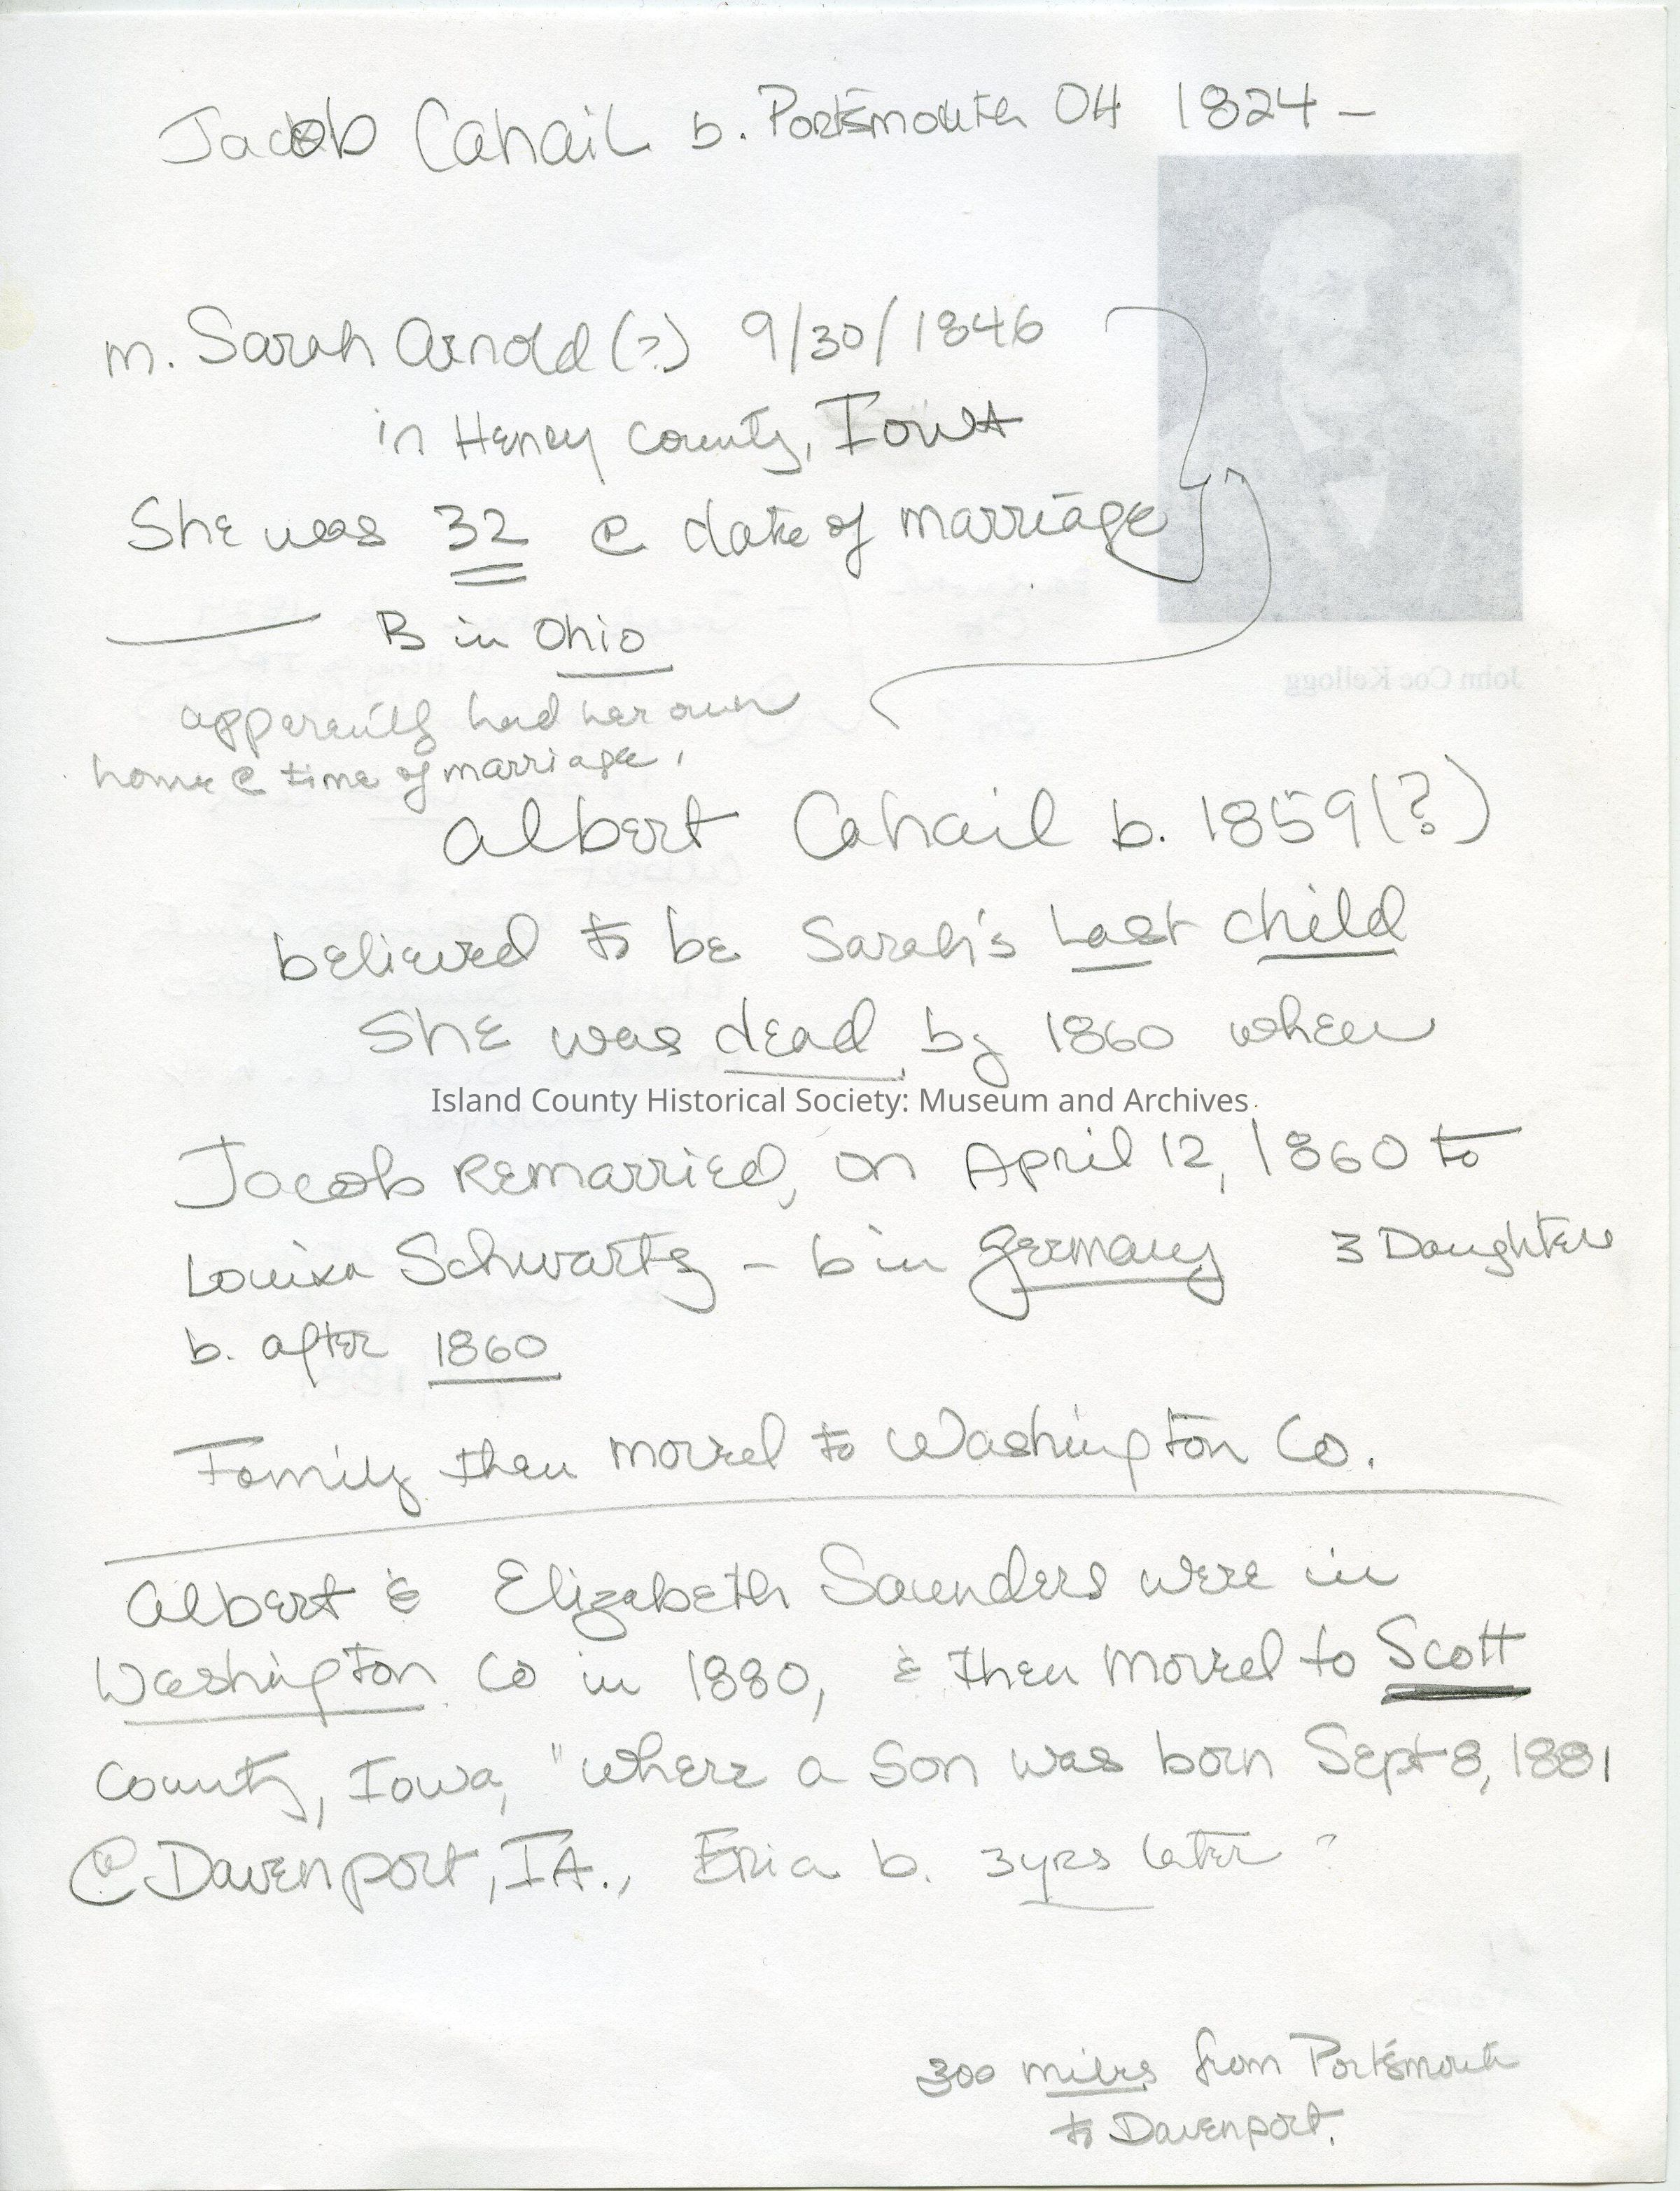 Jacob Cahail b. Portsmouth OH 1824 –
m. Sarah Arnold (?) 9/30/1846
in Henry County, Iowa
She was 32 @ date of marriage
B in Ohio
apparently had her own
home @ time of marriage,
John Coe Kellogg
Albert Cahail b. 1859 (?)
believed to be Sarah's Last child
She was dead by 1860 when
Island County Historical Society: Museum and Archives
Jacob Remarried, on April 12, 1860 to
Louisa Schwartz – b in Germany 3 Daughters
b. after 1860
Family then moved to Washington Co.
Albert & Elizabeth Saunders were in
Washington Co in 1880, & then moved to Scott
County, Iowa, "where a son was born Sept 8, 1881
@ Davenport, IA., Eria b. 3 yrs later"
300 miles from Portsmouth
to Davenport.